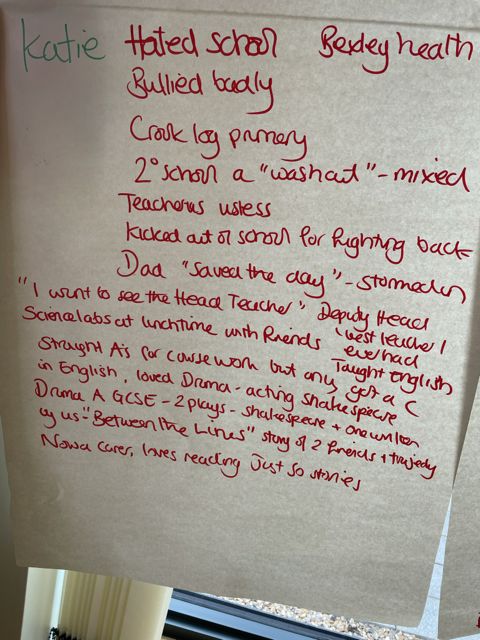 Katie Hated school Bexley heath
Bullied badly
Crook log primary
2° school a "washout" - mixed
Teachers useless
Kicked out of school for fighting back
Dad "saved the day" - stormed in
"I want to see the Head Teacher" Deputy Head
Science labs at lunchtime with friends 'best teacher I
ever had
Taught English
Straight A's for course work but only got a C
in English, loved Drama - acting Shakespeare
Drama A GCSE - 2 plays - Shakespeare + one written
by us "Between the Lines" story of 2 friends + tragedy
Now a carer, loves reading Just So stories